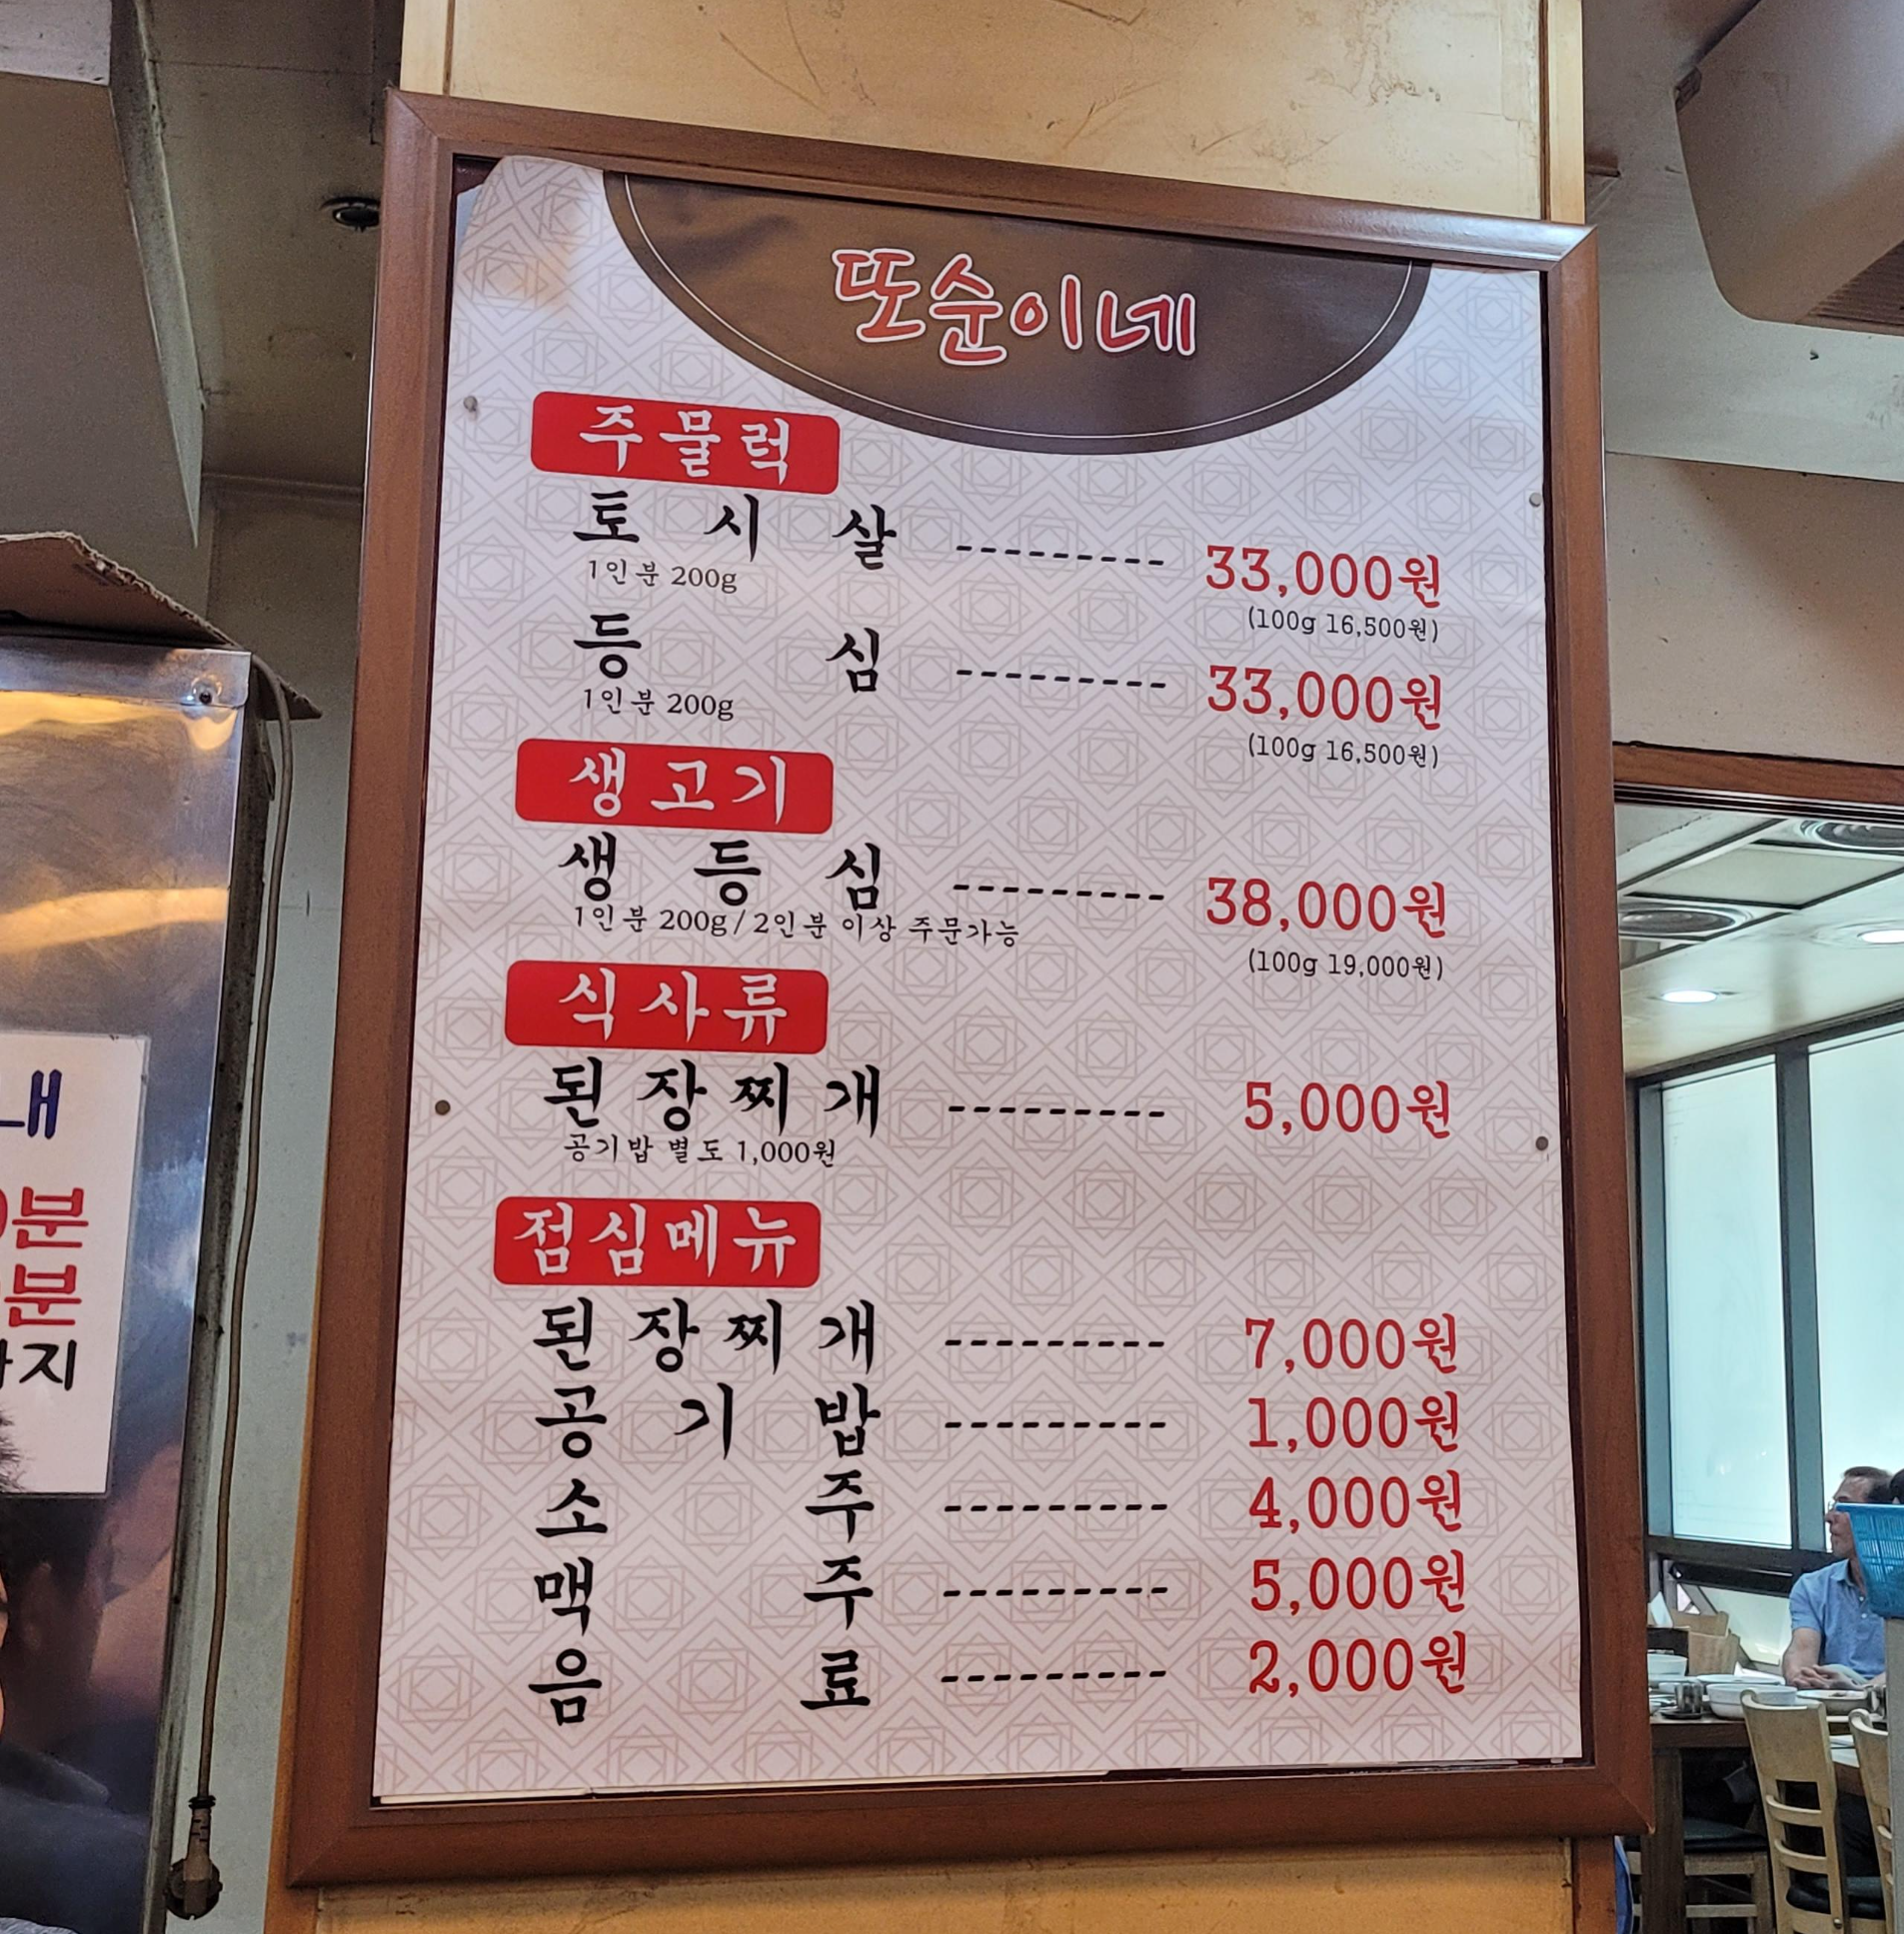 또순이네
주물럭
토시살 --------- 33,000원
1인분 200g
(100g 16,500원)
등심 --------- 33,000원
1인분 200g
(100g 16,500원)
생고기
생등심 --------- 38,000원
1인분 200g/2인분 이상 주문가능
(100g 19,000원)
식사류
된장찌개 --------- 5,000원
공기밥 별도 1,000원
점심메뉴
된장찌개 --------- 7,000원
공기밥 --------- 1,000원
소주 --------- 4,000원
맥주 --------- 5,000원
음료 --------- 2,000원
내
분
분
지